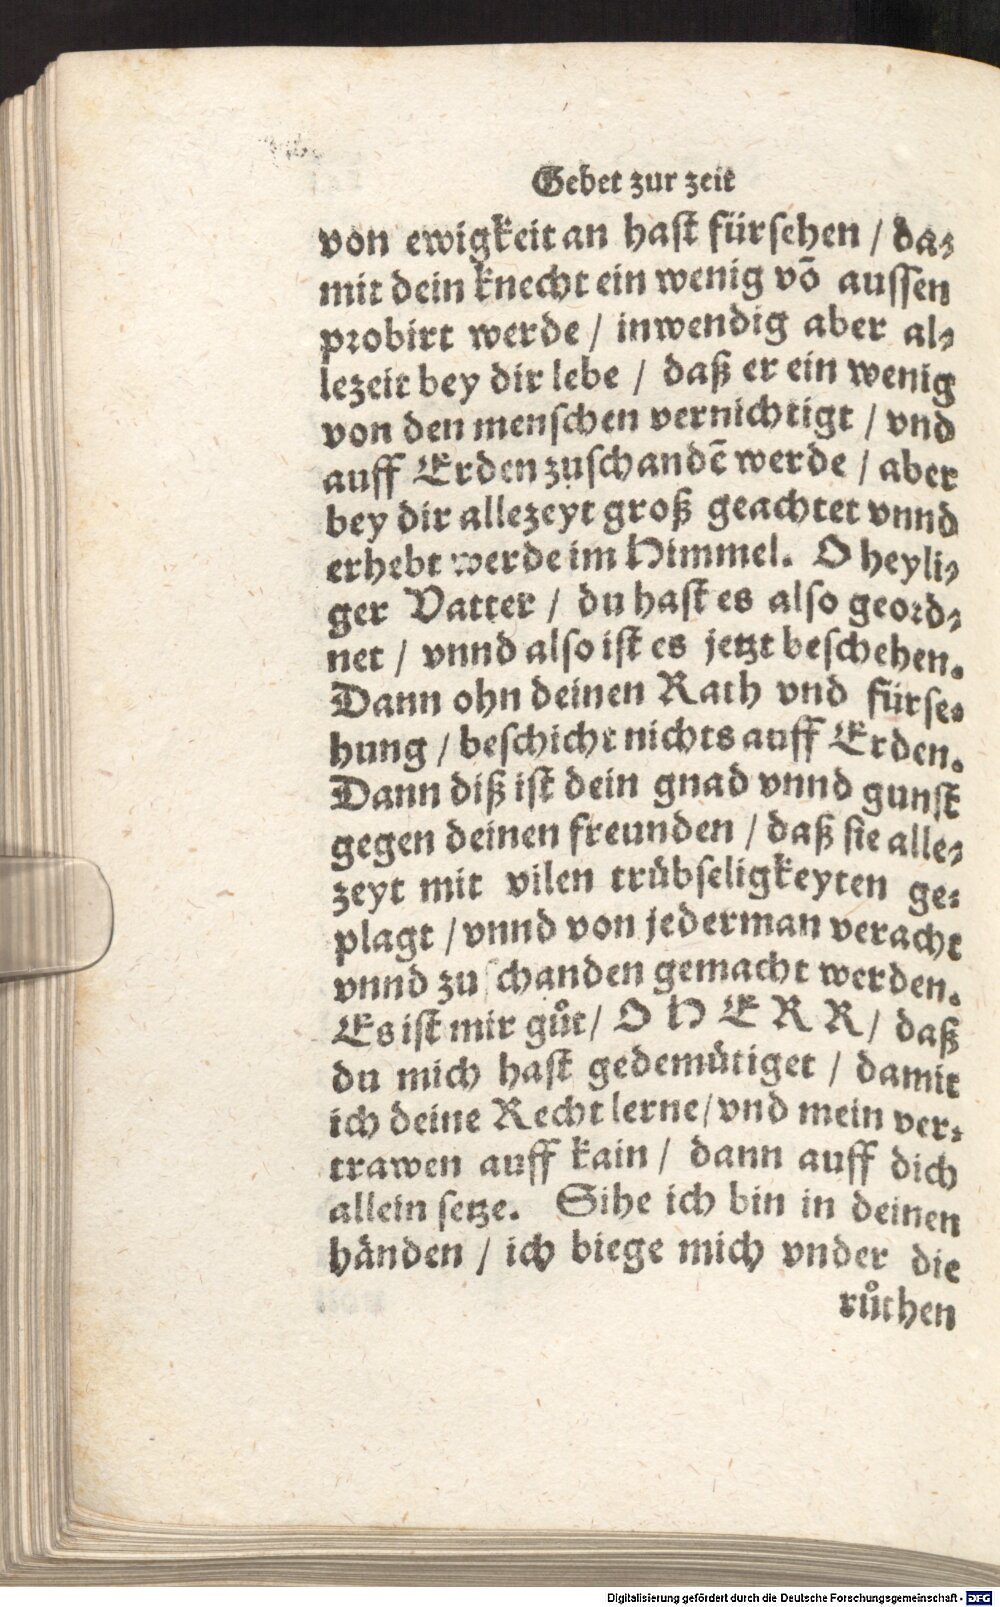 Gebet zur zeit
von ewigkeit an hast fürsehen / da⸗
mit dein knecht ein wenig võ aussen
probirt werde / inwendig aber al⸗
lezeit bey dir lebe / daß er ein wenig
von den menschen vernichtigt / vnd
auff Erden zuschandẽ werde / aber
bey dir allezeyt groß geachtet vnnd
erhebt werde im Himmel. O heyli⸗
ger Vatter / du hast es also geord⸗
net / vnnd also ist es jetzt beschehen.
Dann ohn deinen Rath vnd fürse⸗
hung / beschicht nichts auff Erden.
Dann diß ist dein gnad vnnd gunst
gegen deinen freunden / daß sie alle⸗
zeyt mit vilen trübseligkeyten ge⸗
plagt / vnnd von jederman veracht
vnnd zu schanden gemacht werden.
Es ist mir gůt / O HERR / daß
du mich hast gedemütiget / damit
ich deine Recht lerne / vnd mein ver⸗
trawen auff kain / dann auff dich
allein setze. Sihe ich bin in deinen
händen / ich biege mich vnder die
růthen
Digitalisierung gefördert durch die Deutsche Forschungsgemeinschaft - DFG